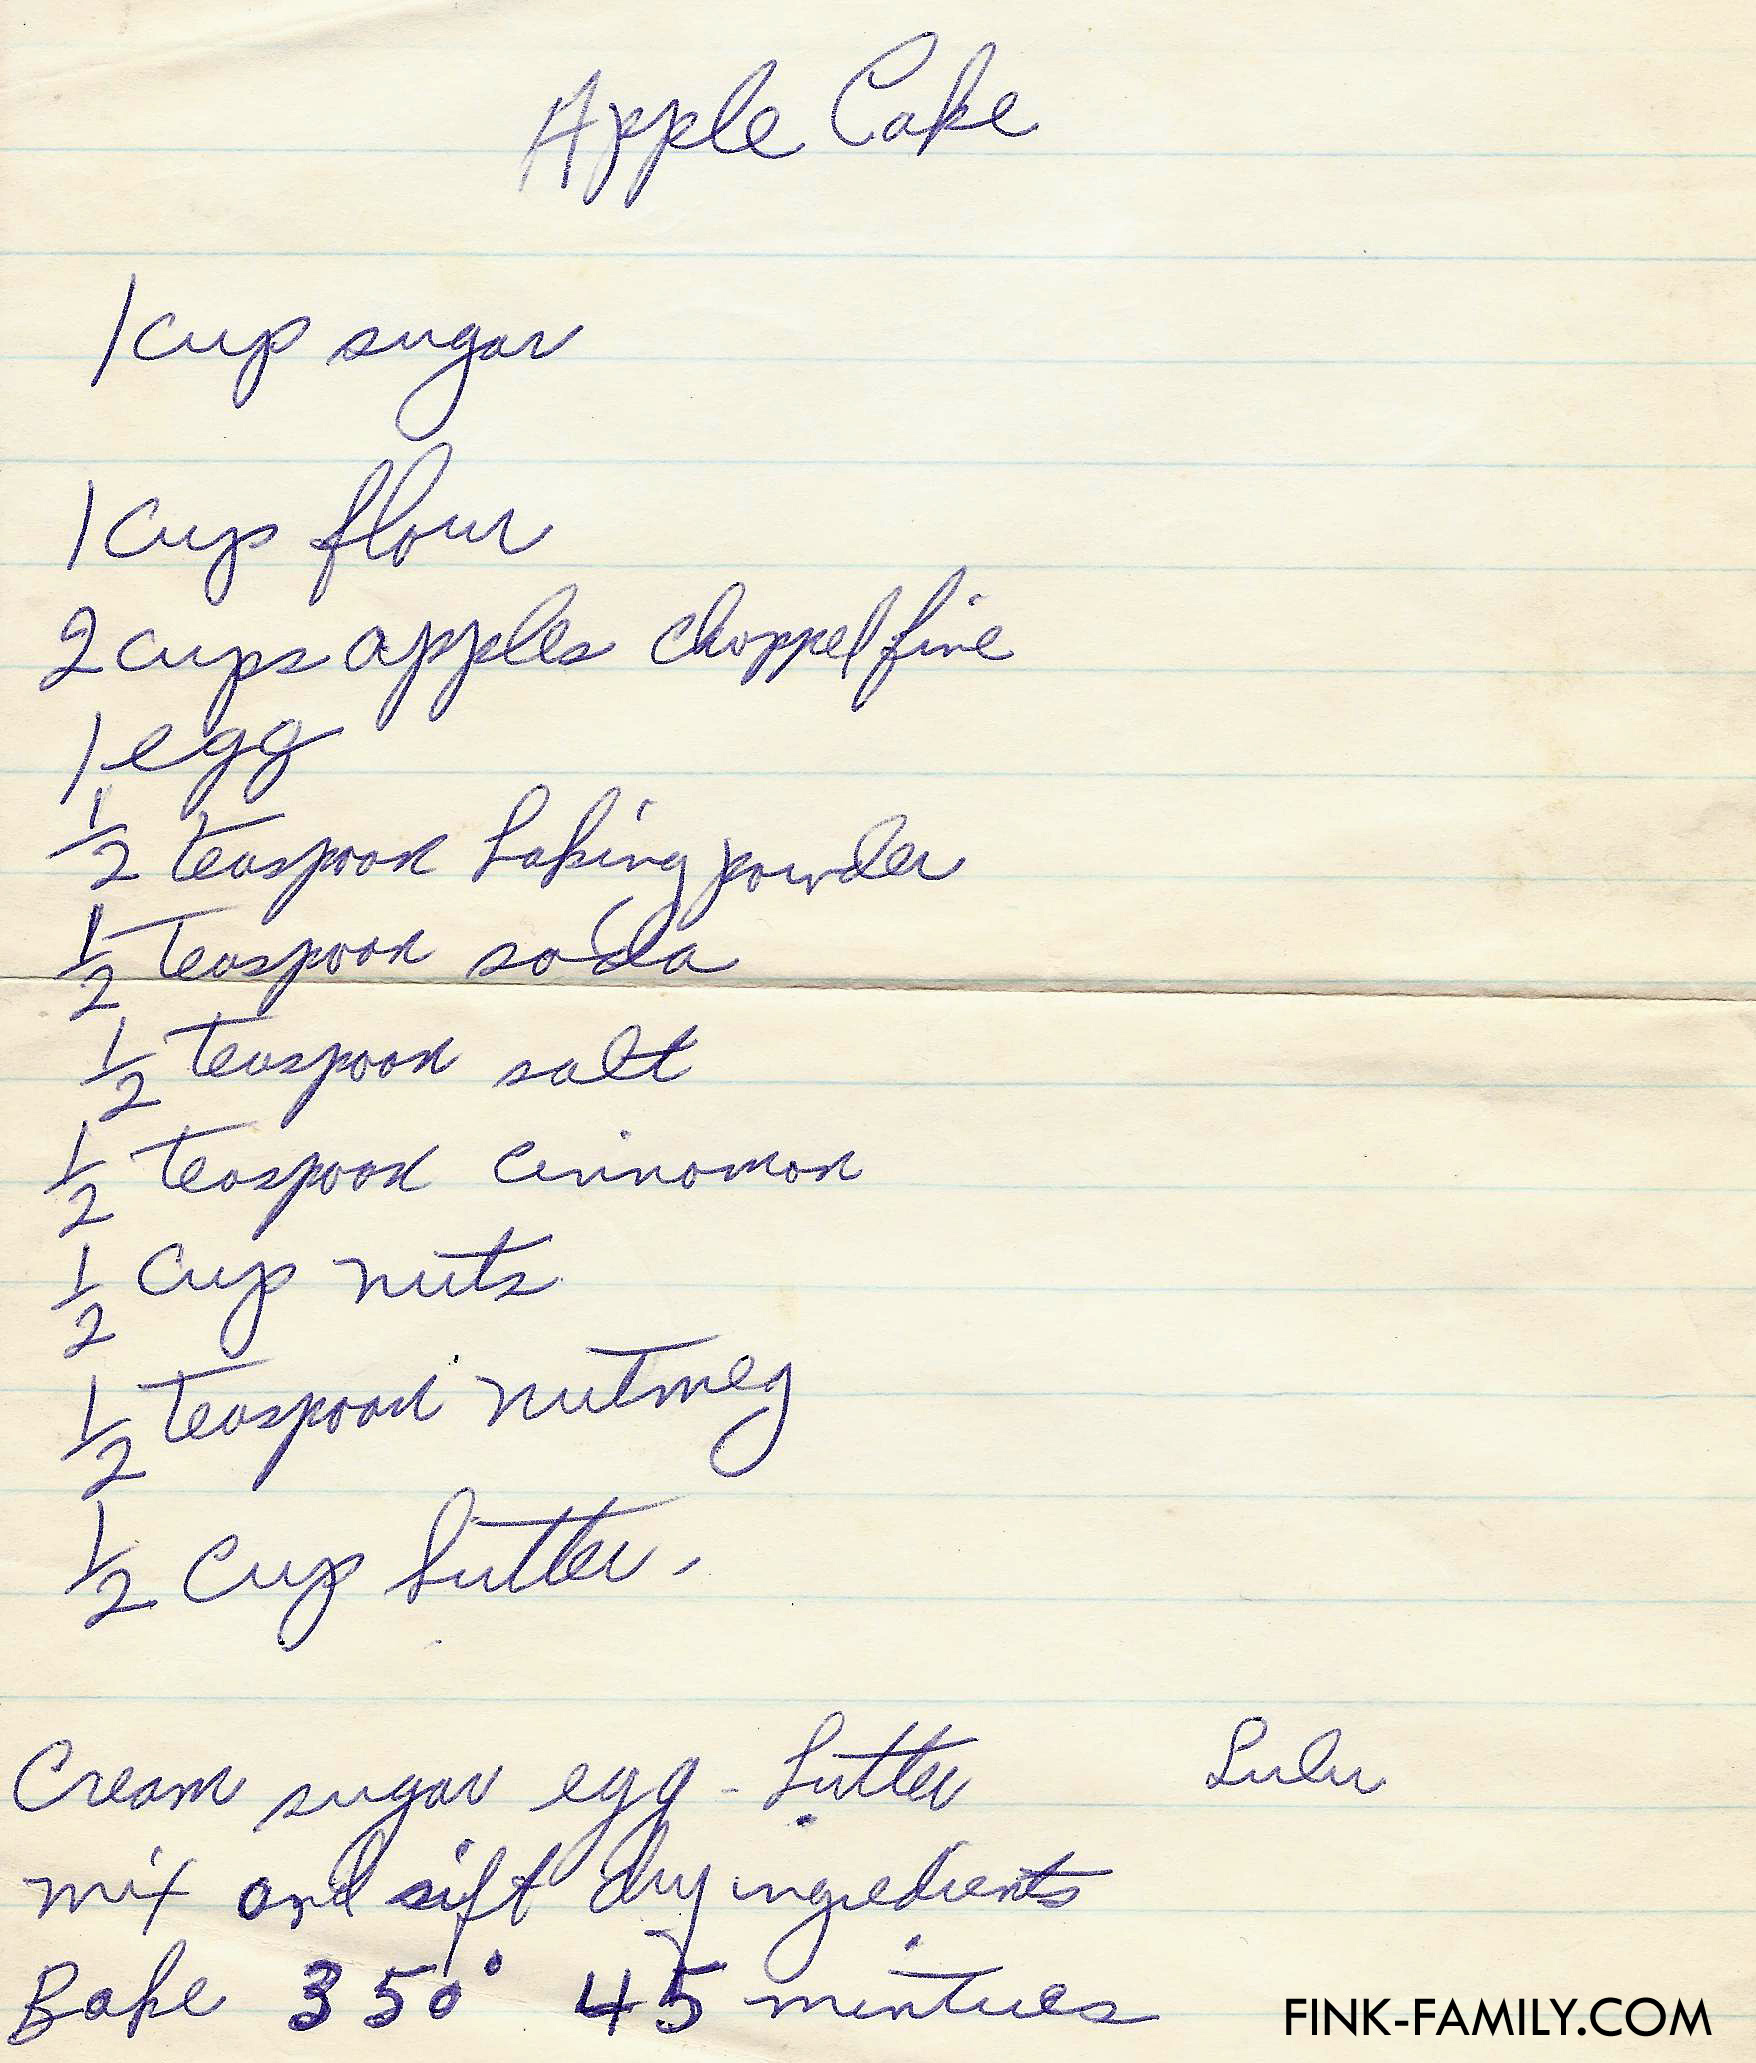 Apple Cake
1 cup sugar
1 Cup flour
2 cups apples chopped fine
1 egg
1/2 teaspoon baking powder
1/2 teaspoon soda
1/2 teaspoon salt
1/2 teaspoon cinnamon
1/2 Cup nuts
1/2 teaspoon nutmeg
1/2 Cup butter.
Cream sugar egg - butter
Lulu
mix and sift dry ingredients
Bake 350° 45 mintues
FINK-FAMILY.COM